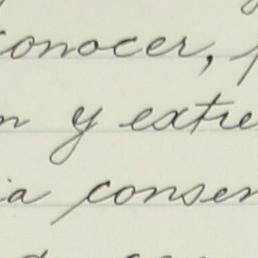 conocer,
n y extre
ia conser